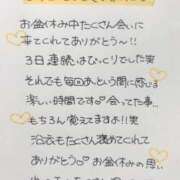 お盆休み中たくさん会いに
来てくれてありがとう〜!!
3日連続はびっくりでした笑
それでも毎回あという間に感じる
楽しい時間です♡会ってた事...
もちろん覚えてますよ!!笑
浴衣もたくさん褒めてくれて
ありがとう♡お盆休みの思い